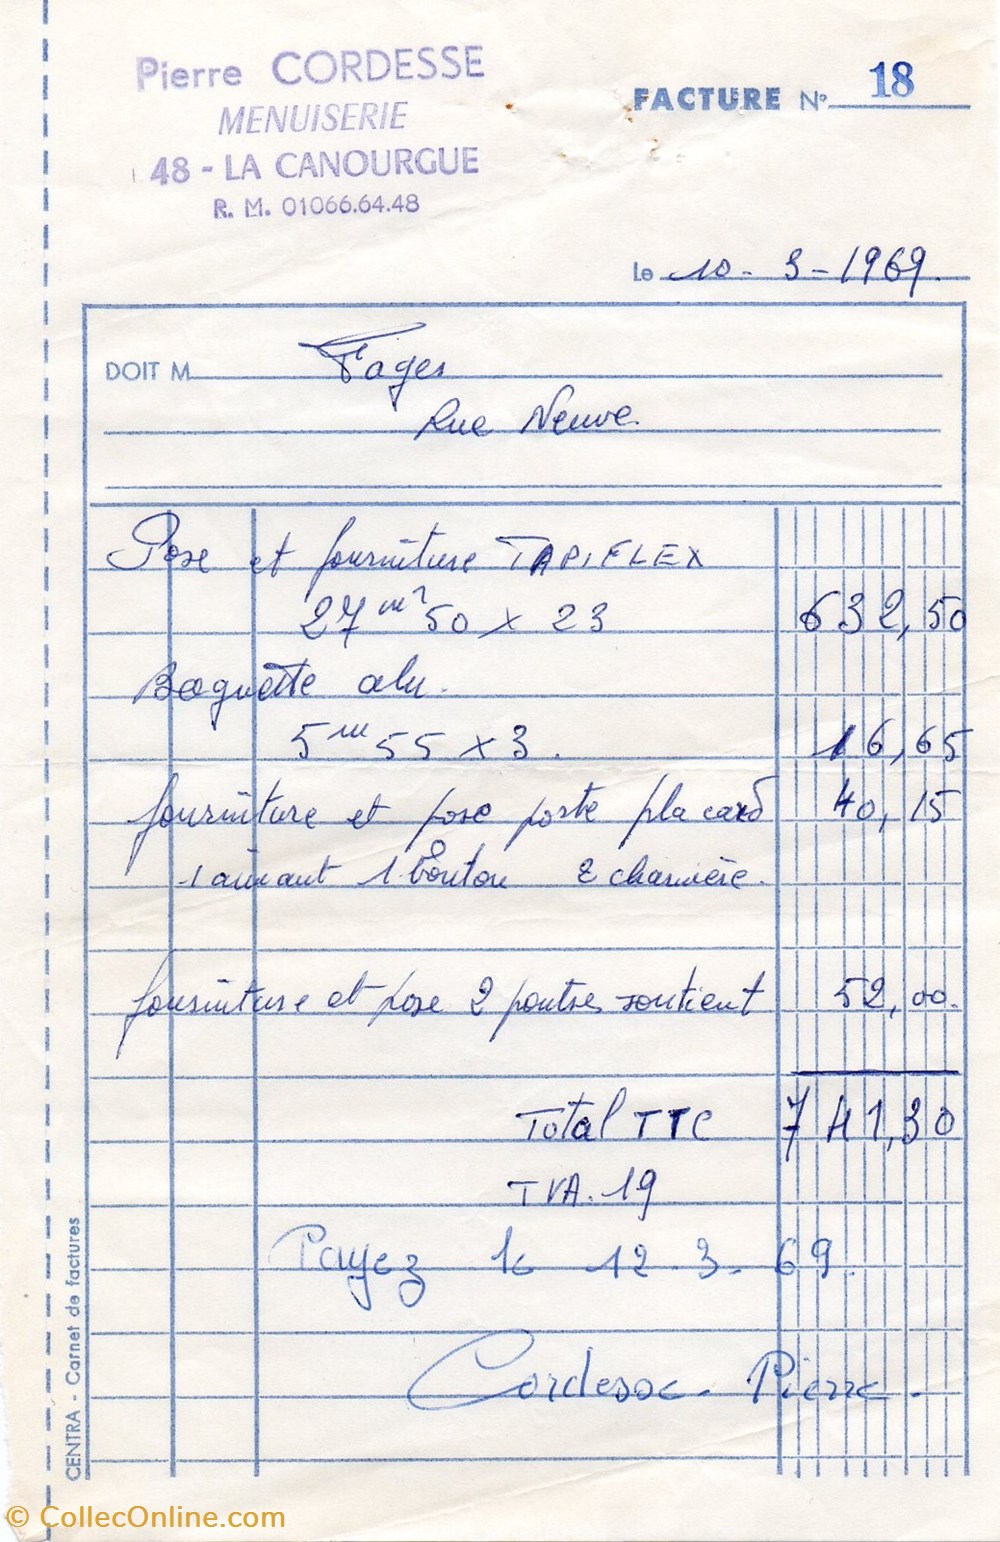 Pierre CORDESSE
MENUISERIE
48 - LA CANOURGUE
R. M. 01066.64.48
FACTURE N° 18
Le 10 - 3 - 1969.
DOIT M. Fages
Rue Neuve
Pose et fourniture TAPIFLEX
27 m² 50 x 23 632,50
Baguette alu.
5 m 55 x 3. 16,65
fourniture et pose porte placard 40,15
1 aimant 1 bouton 2 charnière.
fourniture et pose 2 poutre soutient 52,00.
Total TTC 741,30
TVA. 19
Payez le 12. 3. 69.
Cordesse - Pierre -
CENTRA - Carnet de factures
© CollecOnline.com